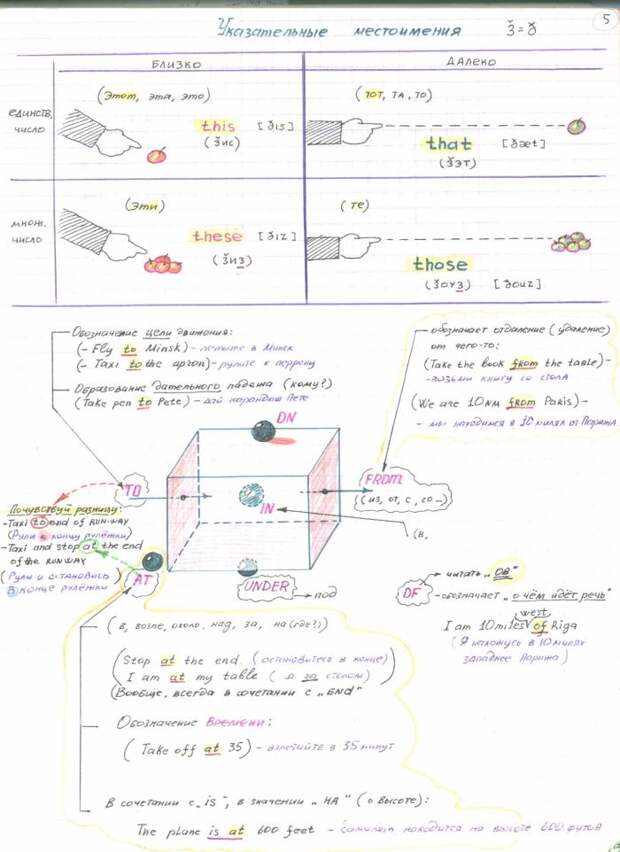 5
Указательные местоимения З̌=ð
БЛИЗКО
ДАЛЕКО
ЕДИНСТВ. ЧИСЛО
(Этот, эта, это)
this [ðis]
(З̌ис)
(ТОТ, ТА, ТО)
that [ðæt]
(З̌ЭТ)
МНОЖ. ЧИСЛО
(Эти)
these [ðiz]
(З̌из)
(те)
those
(З̌оуз) [ðouz]
Обозначение цели движения:
(- Fly to Minsk) - летите в Минск
(- Taxi to the apron) - рулите к перрону
Образование дательного падежа (кому?)
(Take pen to Pete) - дай карандаш Пете
обозначает отдаление (удаление)
от чего-то:
(Take the book from the table) -
- возьми книгу со стола
(We are 10NM from Paris) -
- мы находимся в 10 милях от Парижа
ON
TO
IN
FROM
(из, от, с, со...)
(в,
AT
UNDER → под
Почувствуй разницу:
- Taxi to end of RUNWAY
(Рули к концу рулёжки)
- Taxi and stop at the end
of the RUNWAY
(Рули и остановись
в конце рулёжки)
OF
- читать „ОВ"
- обозначает „о чём идёт речь"
west
I am 10 miles of Riga
(Я нахожусь в 10 милях
западнее Парижа)
(в, возле, около, над, за, на (где?))
(Stop at the end (остановитесь в конце)
I am at my table (я за столом)
(Вообще, всегда в сочетании с „END"
Обозначение Времени:
(Take off at 35) - взлетайте в 35 минут
В сочетании с „is", в значении „НА" (о высоте):
The plane is at 600 feet - самолёт находится на высоте 600 футов